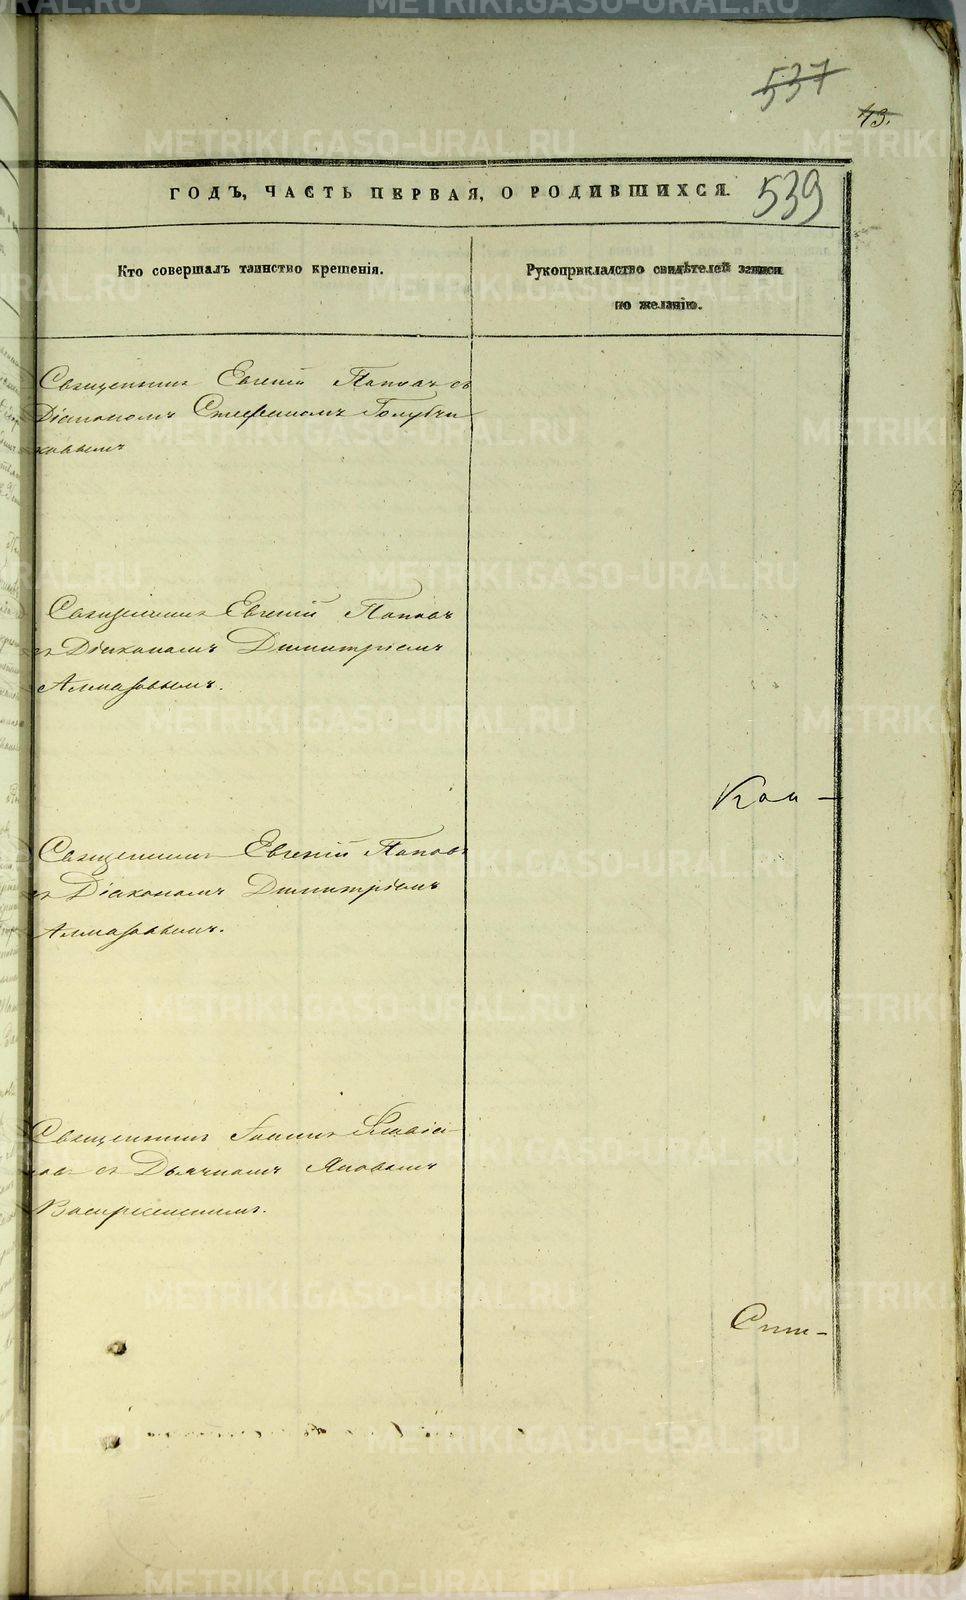 537
43.
ГОДЪ, ЧАСТЬ ПЕРВАЯ, О РОДИВШИХСЯ.
539
Кто совершалъ таинство крещенія.
Рукоприкладство свидѣтелей записи
по желанію.
Священникъ Евгеній Поповъ съ
Діакономъ Стефаномъ Голубчи
ковымъ
Священникъ Евгеній Поповъ
съ Діакономъ Димитріемъ
Алмазовымъ.
Кон-
Священникъ Евгеній Поповъ
съ Діакономъ Димитріемъ
Алмазовымъ.
Священникъ Іоаннъ
съ Дьячкомъ Яковомъ
Воскресенскимъ.
METRIKI.GASO-URAL.RU